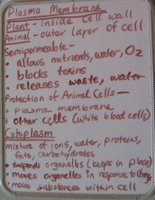 Plasma Membrane
Plant - inside cell wall
Animal - outer layer of cell
Semipermeable -
• allows nutrients, water, O2
• blocks toxins
• releases waste, water
Protection of Animal Cells -
• Plasma membrane
• other cells (white blood cells)
Cytoplasm
mixture of ions, water, proteins,
fats, carbohydrates
• suspends organelles (keeps in place)
• moves organelles in response to
• move substances within cell